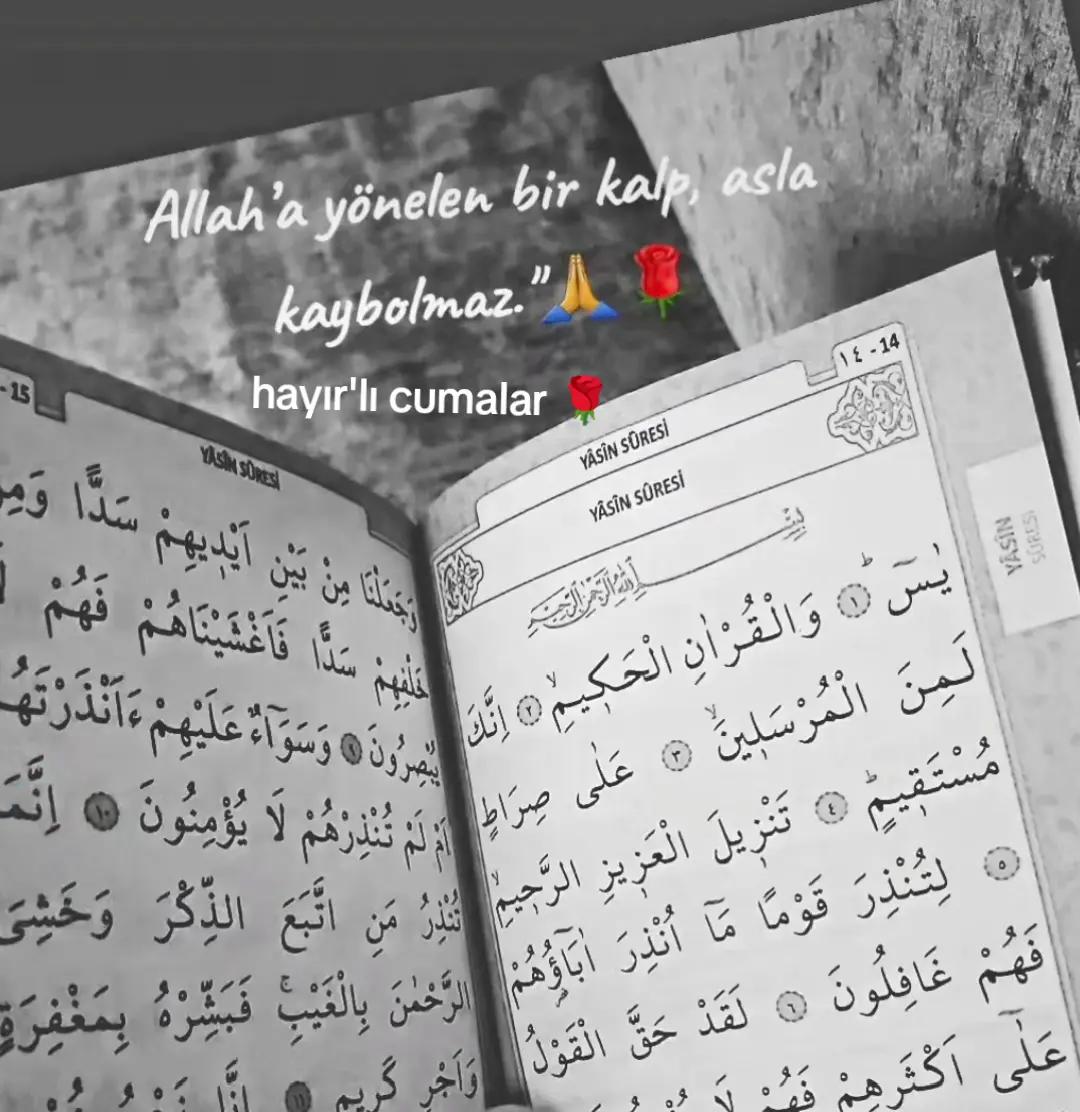 Allah’a yönelen bir kalp, asla
kaybolmaz.”🙏 🌹
hayır'lı cumalar 🌹
١٤ - 14
YÂSÎN SÛRESİ
YÂSÎN SÛRESİ
بِسْــــمِ
اللّٰهِ الرَّحْمٰنِ الرَّحِيمِ
يٰسٓ ۜ ﴿١﴾ وَالْقُرْاٰنِ الْحَكِيمِۙ ﴿٢﴾ اِنَّكَ
لَمِنَ الْمُرْسَلِينَۙ ﴿٣﴾ عَلٰى صِرَاطٍ
مُسْتَقِيمٍۜ ﴿٤﴾ تَنْزِيلَ الْعَزِيزِ الرَّحِيمِۙ
﴿٥﴾ لِتُنْذِرَ قَوْمًا مَٓا اُنْذِرَ اٰبَٓاؤُ۬هُمْ
فَهُمْ غَافِلُونَ ﴿٦﴾ لَقَدْ حَقَّ الْقَوْلُ
عَلٰٓى اَكْثَرِهِمْ فَهُمْ لَا
YÂSİN
SURESİ
- 15
YÂSÎN SÛRESİ
وَجَعَلْنَا مِنْ بَيْنِ اَيْدِيهِمْ سَدًّا وَمِنْ
خَلْفِهِمْ سَدًّا فَاَغْشَيْنَاهُمْ فَهُمْ
يُبْصِرُونَ ﴿٩﴾ وَسَوَٓاءٌ عَلَيْهِمْ ءَاَنْذَرْتَهُ
اَمْ لَمْ تُنْذِرْهُمْ لَا يُؤْمِنُونَ ﴿١٠﴾ اِنَّمَا
تُنْذِرُ مَنِ اتَّبَعَ الذِّكْرَ وَخَشِيَ
الرَّحْمٰنَ بِالْغَيْبِۚ فَبَشِّرْهُ بِمَغْفِرَةٍ
وَاَجْرٍ كَرِيمٍ ﴿١١﴾ اِنَّا نَحْنُ